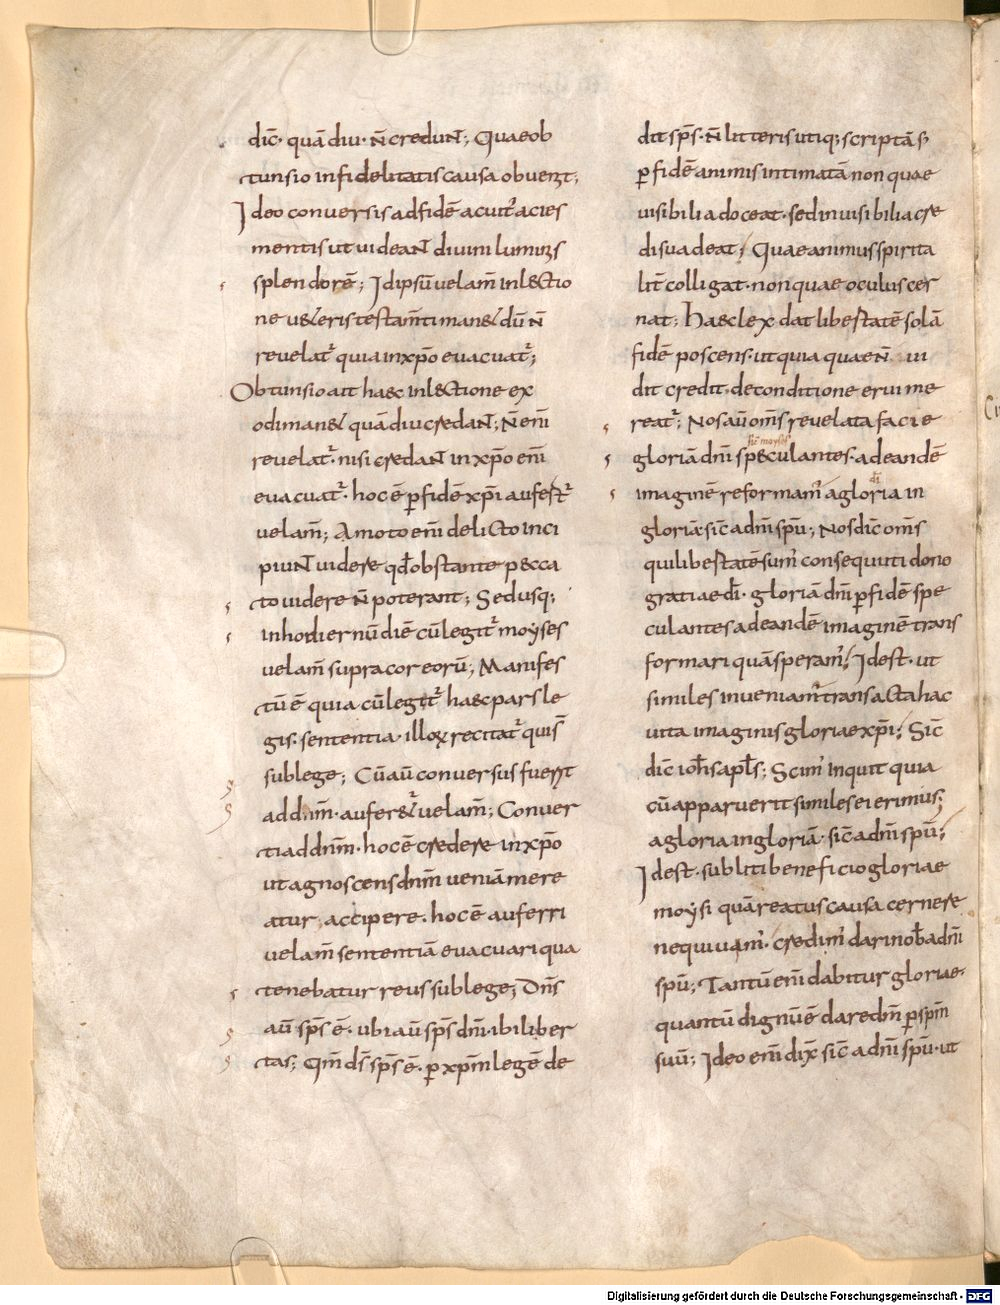 dic̄· quā diu· n̄ creduɴᴛ; Quae ob
tunsio infidelitatis causa obuenit;
Ideo conuersis ad fidē acuit̃ acies
mentis ut uideaɴᴛ diuini luminis
splendorē; Idipsū uelam̄ in lectio
ne ueteris testam̄ti manet dū n̄
reuelat̃ quia in xp̄o euacuat̃;
Obtunsio ait haec in lectione ex
odi manet quādiu credaɴᴛ; N̄ eni̅
reuelat̃· nisi credaɴᴛ in xp̄o eni̅
euacuat̃· hoc ē p̱ fidē xp̄i aufert̃
uelam̄; Amoto eni̅ delicto inci
piuɴᴛ uidere qd̄ obstante pecca
to uidere n̄ poterant; Sed usq;
in hodiernū diē cū legit̃ moyses
uelam̄ supra cor eorū; Manifes
tū ē quia cū legit̃ haec pars le
gis· sententia· illoꝝ recitat̃ qui s̄
sub lege; Cū aū conuersus fuerit
ad dn̄m· auferet̃ uelam̄; Conuer
ti ad dn̄m· hoc ē credere in xp̄o
ut agnoscens dn̄m ueniā mere
atur accipere· hoc ē auferri
uelam̄ sententiā euacuari qua
tenebatur reus sub lege; Dn̄s
aū sp̄s ē· ubi aū sp̄s dn̄i· ibi liber
tas; Qm̄ ds̄ sp̄s ē· p̱ xp̄m legē de
dit sp̄s· n̄ litteris utiq; scriptā s;
p̱ fidē animis intimatā non quae
uisibilia doceat· sed inuisibilia cre
di suadeat; Quae animus spirita
lit̄ colligat· non quae oculus cer
nat; Haec lex dat libertatē solā
fidē poscens· ut quia quae n̄ ui
dit credit· de conditione erui me
reat̃; Nos aū om̄s reuelata facie
sic̄ moyses
gloriā dn̄i speculantes· ad eandē
di̅
imaginē reformam̃ a gloria in
gloriā· sic̄ a dn̄i spū; Nos dic̄ om̄s
qui libertatē sum̃ consequuti dono
gratiae di̅· gloriā dn̄i p̱ fidē spe
culantes ad eandē imaginē trans
formari quā speram̃; Id est· ut
similes inueniam̃ transacta hac
uita imaginis gloriae xp̄i; Sic̄
dic̄ ioh̄s apl̄s; Scim̃ inquit quia
cū apparuerit similes ei erimus;
a gloria in gloriā· sic̄ a dn̄i spū;
Id est· subliti beneficio gloriae
moysi quā reatus causa cernere
nequiuim̃· credim̃ dari nob̄ a dn̄i
spū; Tantū eni̅ dabitur gloriae·
quantū dignū ē dare dn̄m p̱ spm̄
suū; Ideo eni̅ dix̄ sic̄ a dn̄i spū· ut
Digitalisierung gefördert durch die Deutsche Forschungsgemeinschaft - DFG